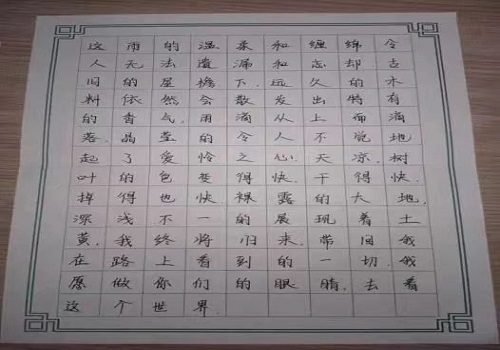 这雨的温柔和缠绵令
人无法遗漏和忘却古
旧的屋檐下,远久的木
料依然会散发出特有
的香气,雨滴从上面滴
落。晶莹的令人不觉地
起了爱怜之心。天凉,树
叶的色变得快,干得快,
掉得也快。裸露的大地,
深浅不一的展现着土
黄,我终将归来,带回我
在路上看到的一切,我
愿做你们的眼睛,去看
这个世界.